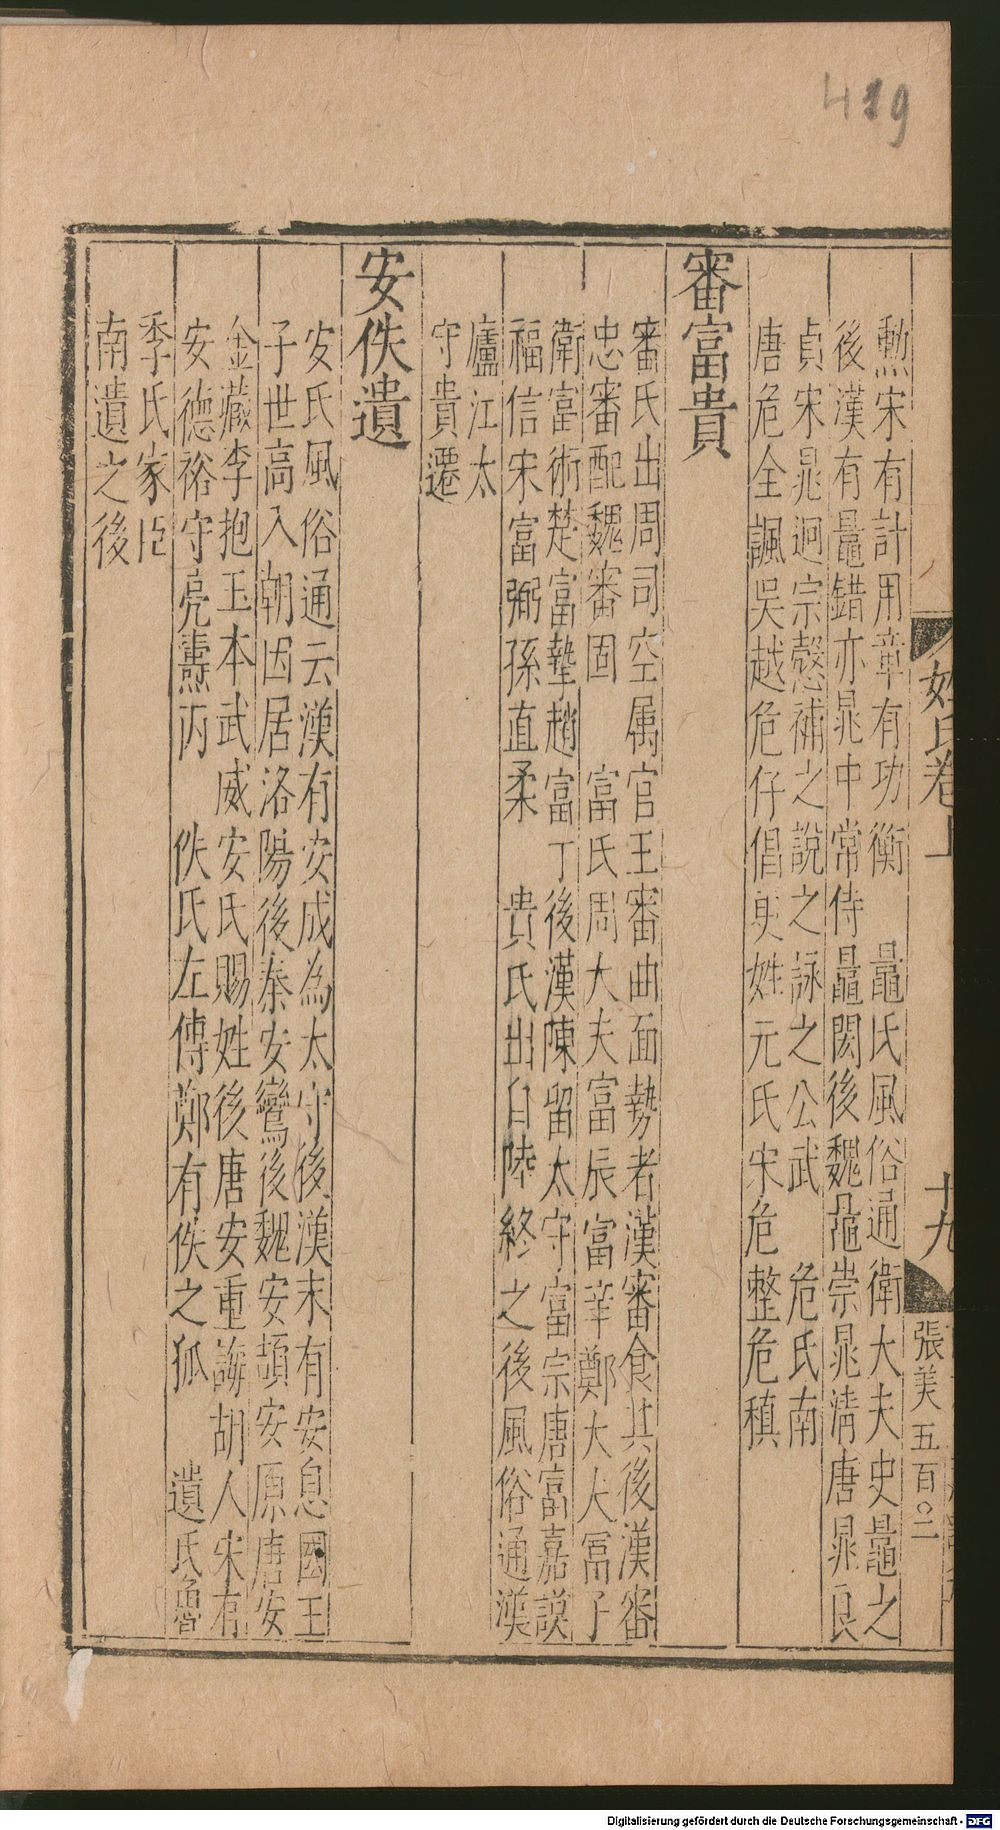 419
姓氏卷上
十九
張美 五百〇二
勲宋有計用章有功衡　鼂氏風俗通衛大夫史鼂之
後漢有鼂錯亦晁中常侍鼂閎後魏鼂崇晁清唐晁良
貞宋晁迥宗慤補之說之詠之公武　危氏南
唐危全諷吳越危仔倡更姓元氏宋危整危稹
審富貴
審氏出周司空属官王審曲面勢者漢審食其後漢審
忠審配魏審固　富氏周大夫富辰富辛鄭大夫冨子
衛富術楚富摯趙富丁後漢陳留太守富宗唐富嘉謨
福信宋富弼孫直柔　貴氏出自陸終之後風俗通漢
廬江太
守貴遷
安佚遺
安氏風俗通云漢有安成為太守後漢末有安息國王
子世高入朝因居洛陽後秦安鸞後魏安頡安原唐安
金藏李抱玉本武威安氏賜姓後唐安重誨胡人宋有
安德裕守亮燾丙　佚氏左傳鄭有佚之狐　遺氏魯
季氏家臣
南遺之後
Digitalisierung gefördert durch die Deutsche Forschungsgemeinschaft - DFG